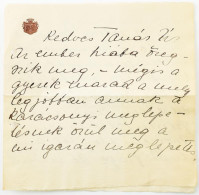 Kedves Tanár Úr
Az ember hiába öreg-
szik meg, - mégis a
gyerek marad a
legjobban annak a
karácsonyi meglepe-
tésnek örül meg a
mi igazán meglepetés